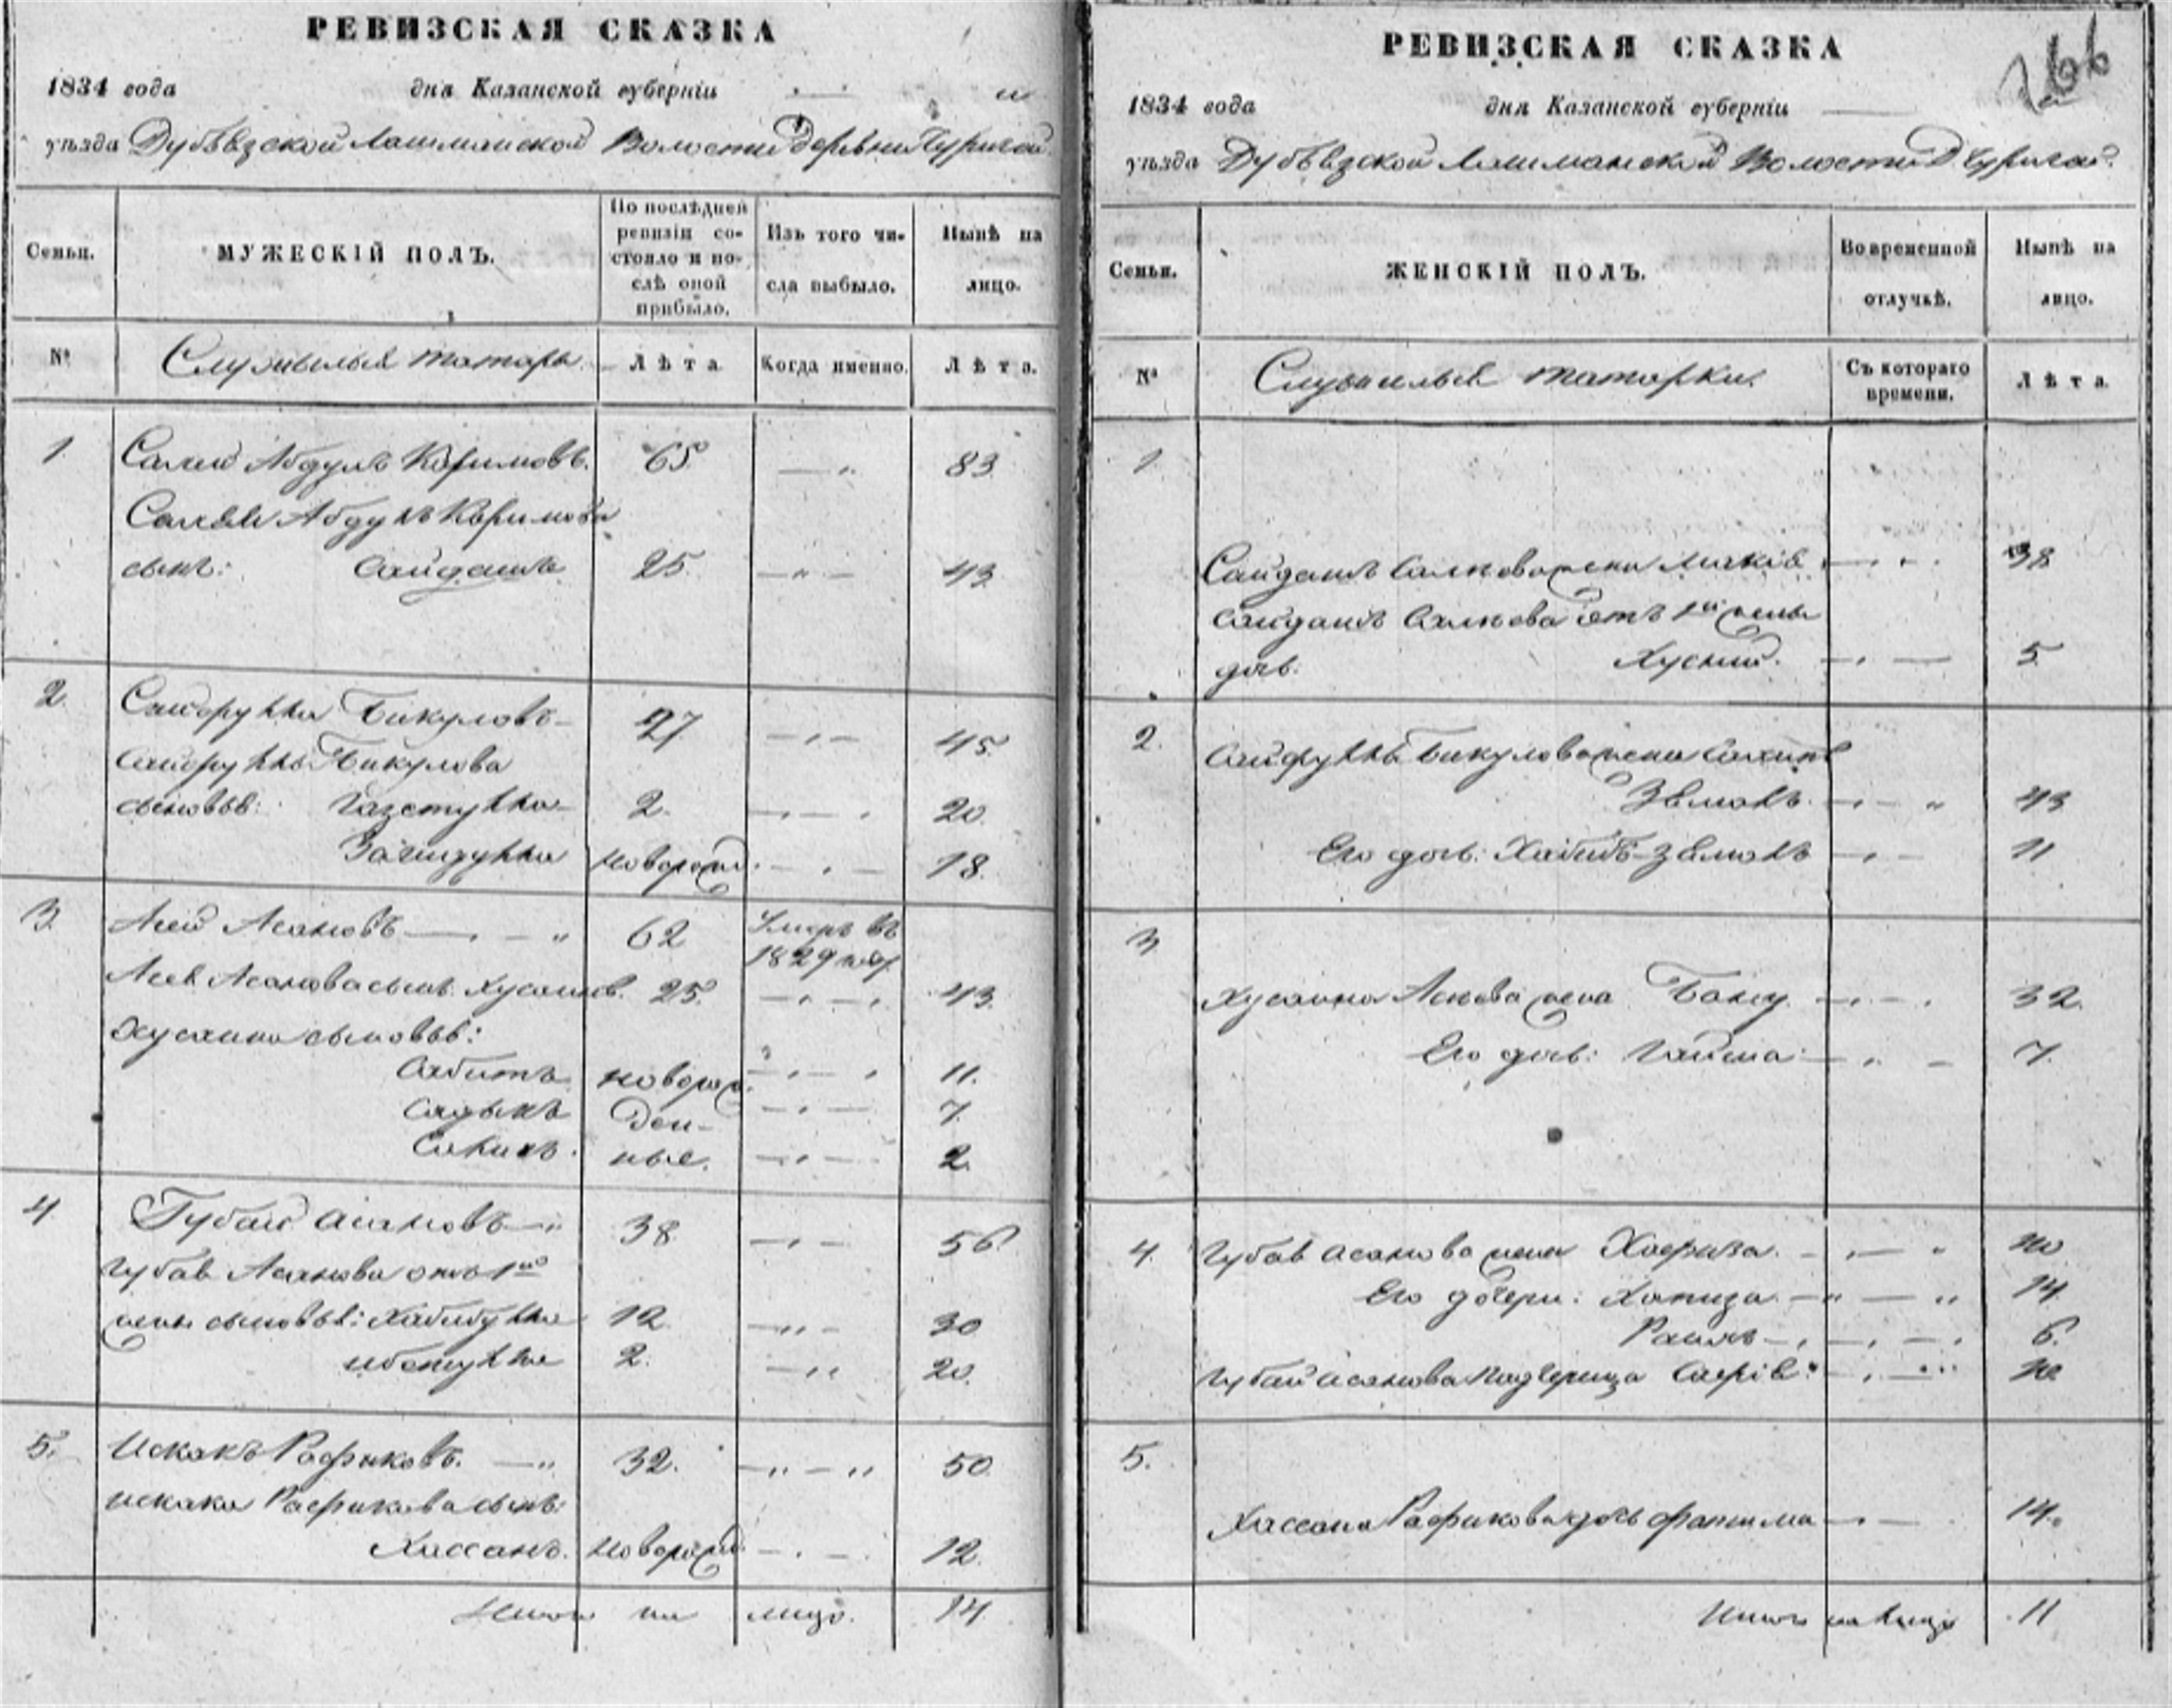 РЕВИЗСКАЯ СКАЗКА
1834 года дня Казанской губерніи
уѣзда Дубъязской Лашманской Волости Деревни Чуричай
Семьи. МУЖЕСКІЙ ПОЛЪ. По послѣдней ревизіи состояло и послѣ оной прибыло. Изъ того числа выбыло. Нынѣ на лицо.
№ Служилыя татары Лѣта Когда именно. Лѣта.
1. Салей Абдулъ Каримовъ. 65 83
Салея Абдулъ Каримова
сынъ: Сайдашъ 25 43
2. Сайфулла Бикуловъ 27 45
Сайфуллы Бикулова
сыновья: 2. 20.
новорожд. 18.
3. Асей Асановъ 62 Умеръ въ
1829 году
Асея Асанова сынъ Хусаинъ. 25. 43.
Хусаина сыновья:
Сабитъ новорож 11.
Садыкъ ден- 7.
ные. 2
4. Губай Асановъ 38 56
Губая Асанова отъ 1й
жены сыновья: Хабибулла 12 30
2. 20.
5. Искакъ Рафиковъ. 32. 50
Искака Рафикова сынъ:
Хассанъ. новорожд. 12.
Итого на лицо. 14
РЕВИЗСКАЯ СКАЗКА
1834 года дня Казанской губерніи
уѣзда Дубъязской Лашманской Волости Д. Чуричай.
Семьи. ЖЕНСКІЙ ПОЛЪ. Во временной отлучкѣ. Нынѣ на лицо.
№ Служилыя татарки. Съ котораго времени. Лѣта.
1
Сайдаша Салеева жена 38
Сайдаша Салеева отъ 1й жены
дочь: 5
2. Сайфуллы Бикулова жена
Зямалъ. 43
Его дочь: Хабибъ-Зямалъ 11
3
Хусаина Асеева жена Бану. 32.
Его дочь: Гайша 7.
4. Губая Асанова жена Хафиза.
Его дочери: 14
6.
Губая Асанова падчерица
5.
Хассана Рафикова дочь Фатима 14.
Итого на лицо 11